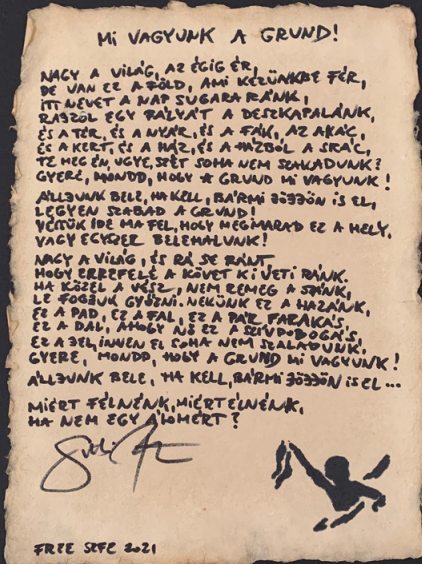 MI VAGYUNK A GRUND!
NAGY A VILÁG, AZ ÉGIG ÉR,
DE VAN EZ A FÖLD, AMI KEZÜNKBE FÉR,
ITT NEVET A NAP SUGARA RÁNK,
RAJZOL EGY PÁLYÁT A DESZKAPALÁNK,
ÉS A TÉR, ÉS A NYÁR, ÉS A FÁK, AZ AKÁC,
ÉS A KERT, ÉS A HÁZ, ÉS A HÁZBÓL A SRÁC,
TE MEG ÉN, UGYE, SZÉT SOHA NEM SZAKADUNK?
GYERE, MONDD, HOGY A GRUND MI VAGYUNK!
ÁLLJUNK BELE, HA KELL, BÁRMI JÖJJÖN IS EL,
LEGYEN SZABAD A GRUND!
VÉSTÜK IDE MA FEL, HOGY MEGMARAD EZ A HELY,
VAGY EGYSZER BELEHALUNK!
NAGY A VILÁG, ÉS RÁ SE RÁNT
HOGY ERREFELÉ A KÖVET KI VETI RÁNK.
HA KÖZEL A VÉSZ, NEM REMEG A SZÁNK,
LE FOGJUK GYŐZNI. NEKÜNK EZ A HAZÁNK,
EZ A PAD, EZ A FAL, EZ A PÁR FARAKÁS,
EZ A DAL, AHOGY NŐ EZ A SZÍVDOBOGÁS,
EZ A JEL, INNEN EL SOHA NEM SZALADUNK,
GYERE, MONDD, HOGY A GRUND MI VAGYUNK!
ÁLLJUNK BELE, HA KELL, BÁRMI JÖJJÖN IS EL...
MIÉRT FÉLNÉNK, MIÉRT ÉLNÉNK,
HA NEM EGY ÁLOMÉRT?
FREE SZFE 2021